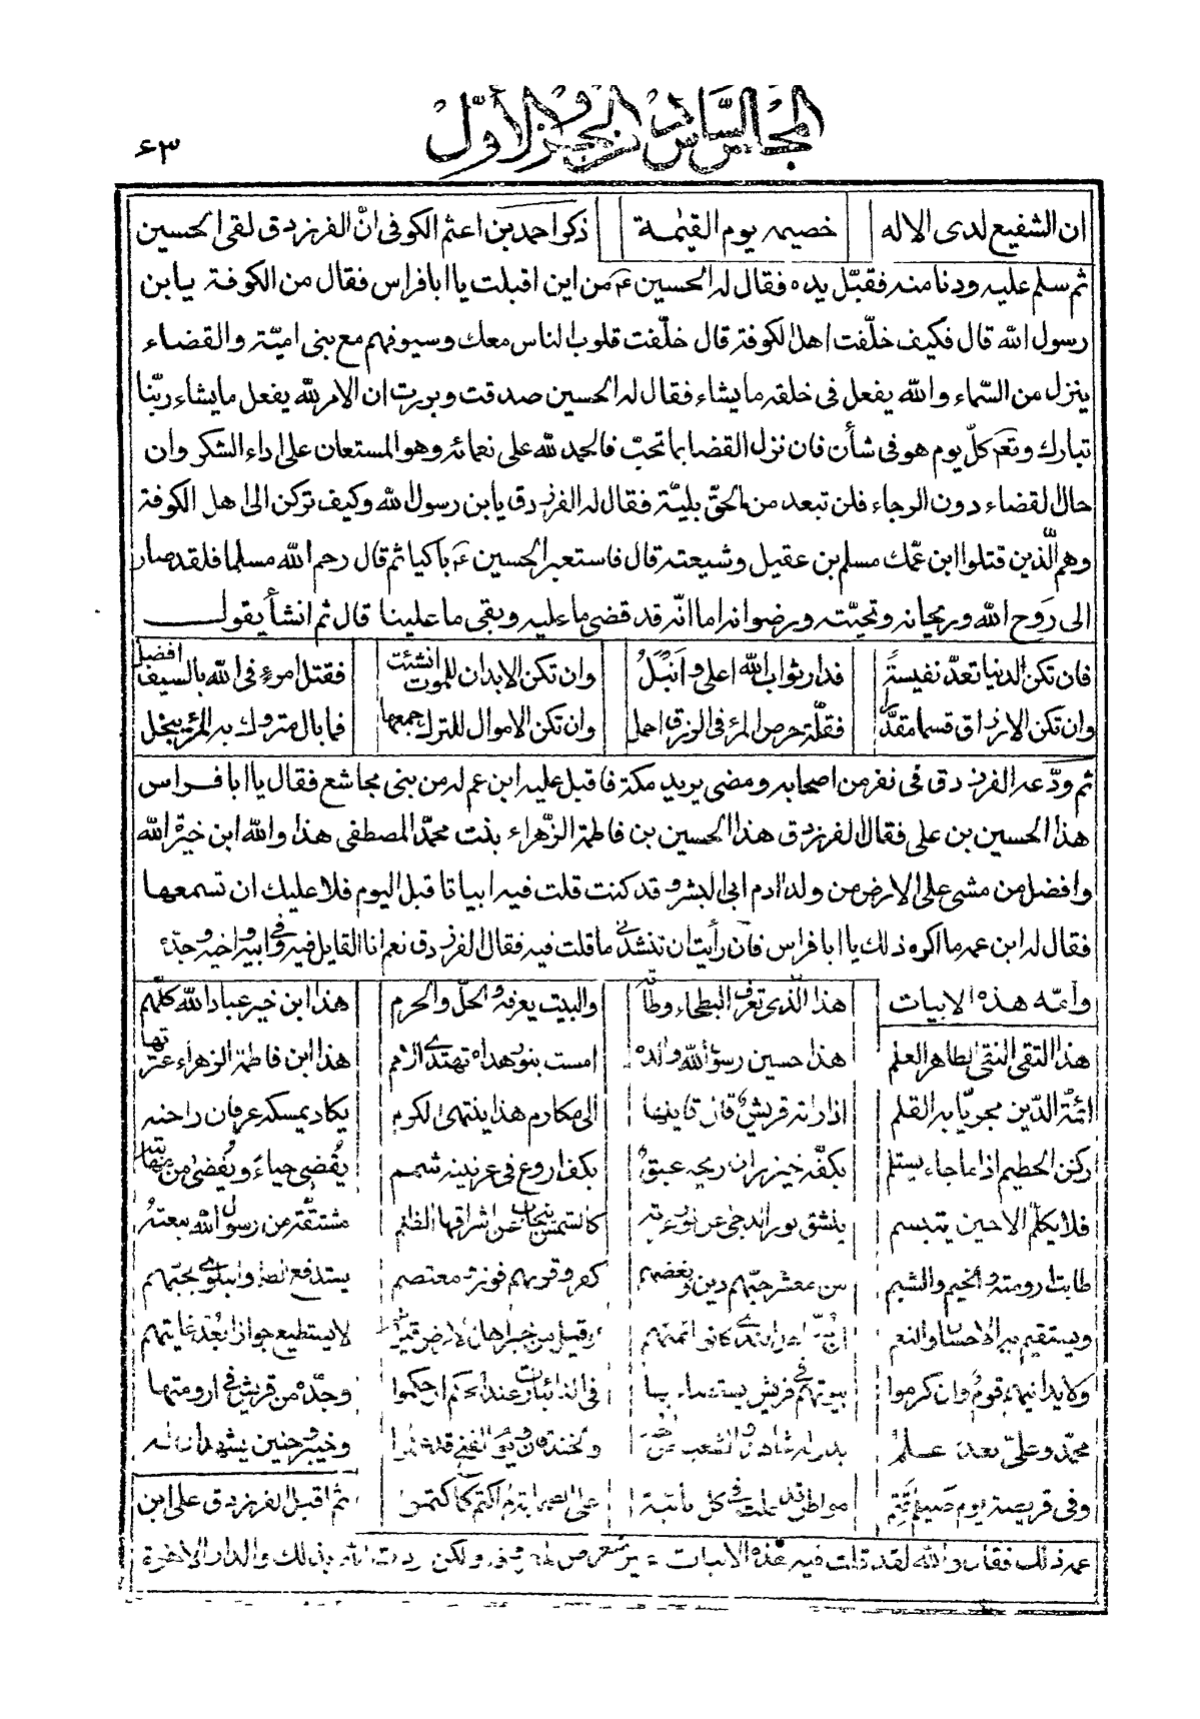 المجلس السادس والجزء الأول
۶۳
ان الشفيع لدى الاله خصيمه يوم القيمة ذكر احمد بن اعثم الكوفى انّ الفرزدق لقى الحسين
ثم سلم عليه ودنا منه فقبّل يده فقال له الحسين ع من اين اقبلت يا ابا فراس فقال من الكوفة يا بن
رسول الله قال فكيف خلّفت اهل الكوفة قال خلّفت قلوب الناس معك وسيوفهم مع بنى اميّة والقضاء
ينزل من السّماء والله يفعل فى خلقه ما يشاء فقال له الحسين صدقت وبررت ان الامر لله يفعل ما يشاء ربّنا
تبارك وتعم كلّ يوم هو فى شأن فان نزل القضا بما تحبّ فالحمد لله على نعمائه وهو المستعان على اداء الشكر وان
حال القضاء دون الرجاء فلن تبعد من الحقّ بليّة فقال له الفرزدق يا بن رسول الله وكيف تركن الى اهل الكوفة
وهم الّذين قتلوا ابن عمّك مسلم بن عقيل وشيعته قال فاستعبر الحسين ع باكيا ثم قال رحم الله مسلما فلقد صار
الى رَوح الله وريحانه وتحيّته ورضوانه اما انّه قد قضى ما عليه وبقى ما علينا قال ثم انشأ يقول
فان تكن الدنيا تعدّ نفيسةً فدار ثواب الله اعلى وانبلُ وان تكن الابدان للموت انشئت فقتل امرءٍ فى الله بالسيف افضل
وان تكن الارزاق قسما مقدّرا فقلّة حرص المرء فى الرزق اجمل وان تكن الاموال للترك جمعها فما بال متروك به المرء يبخل
ثم ودّعه الفرزدق فى نفر من اصحابه ومضى يريد مكة فاقبل عليه ابن عم له من بنى مجاشع فقال يا ابا فراس
هذا الحسين بن على فقال الفرزدق هذا الحسين بن فاطمة الزّهراء بنت محمّد المصطفى هذا والله ابن خيرة الله
وافضل من مشى على الارض من ولد ادم ابى البشر وقد كنت قلت فيه ابياتا قبل اليوم فلا عليك ان تسمعها
فقال له ابن عمه ما اكره ذلك يا ابا فراس فان رأيت ان تنشدنى ما قلت فيه فقال الفرزدق نعم انا القايل فيه وفى ابيه واخيه وجدّه
وامّه هذه الابيات هذا الّذى تعرف البطحاء وطأته والبيت يعرفه والحلّ والحرم هذا ابن خير عباد الله كلّهم
هذا التقى النقى الطاهر العلم هذا حسين رسول الله والده امست بنور هداه تهتدى الامم هذا ابن فاطمة الزهراء عترتها
ائمّة الدّين مجريّا به القلم اذا راته قريش قال قائلها الى مكارم هذا ينتهى الكرم يكاد يمسكه عرفان راحته
ركن الحطيم اذا ما جاء يستلم بكفّه خيزران ريحه عبقٌ بكف اروع فى عرنينه شمم يُغضى حياءً ويُغضى من مهابته
فلا يكلّم الا حين يتبسم ينشق نور الدجى عن نور غرته كالشمس ينجاب عن اشراقها الظلم مشتقّة من رسول الله نبعته
طابت ارومته والخيم والشيم من معشر حبّهم دين وبغضهم كفر وقربهم فوز ومعتصم يستدفع الضرّ والبلوى بحبّهم
ويستقيم به الاحسان والنعم ان عدّ اهل الندى كانوا ائمتهم او قيل من خير اهل الارض قيل هم لا يستطيع جواد بُعد غايتهم
ولا يدانيهم قومٌ وان كرموا بيوتهم فى قريش يستضاء بها فى النائبات عند الحكم ان حكموا وجدّه من قريش فى ارومتها
محمّد وعلىّ بعده علمُ بدر له شاهد والشعب من احد والخندقان ويوم الفتح قد علموا وخيبر وحنين يشهدان له
وفى قريضة يوم صيلم قتم مواطن قد علت فى كل نائبة على الصحابة لم اكتم كما كتموا ثم اقبل الفرزدق على ابن
عمه ذلك فقال والله لقد قلت فيه هذه الابيات غير متعرض الى معروفه ولكن اردت الله بذلك والدار الاخرة